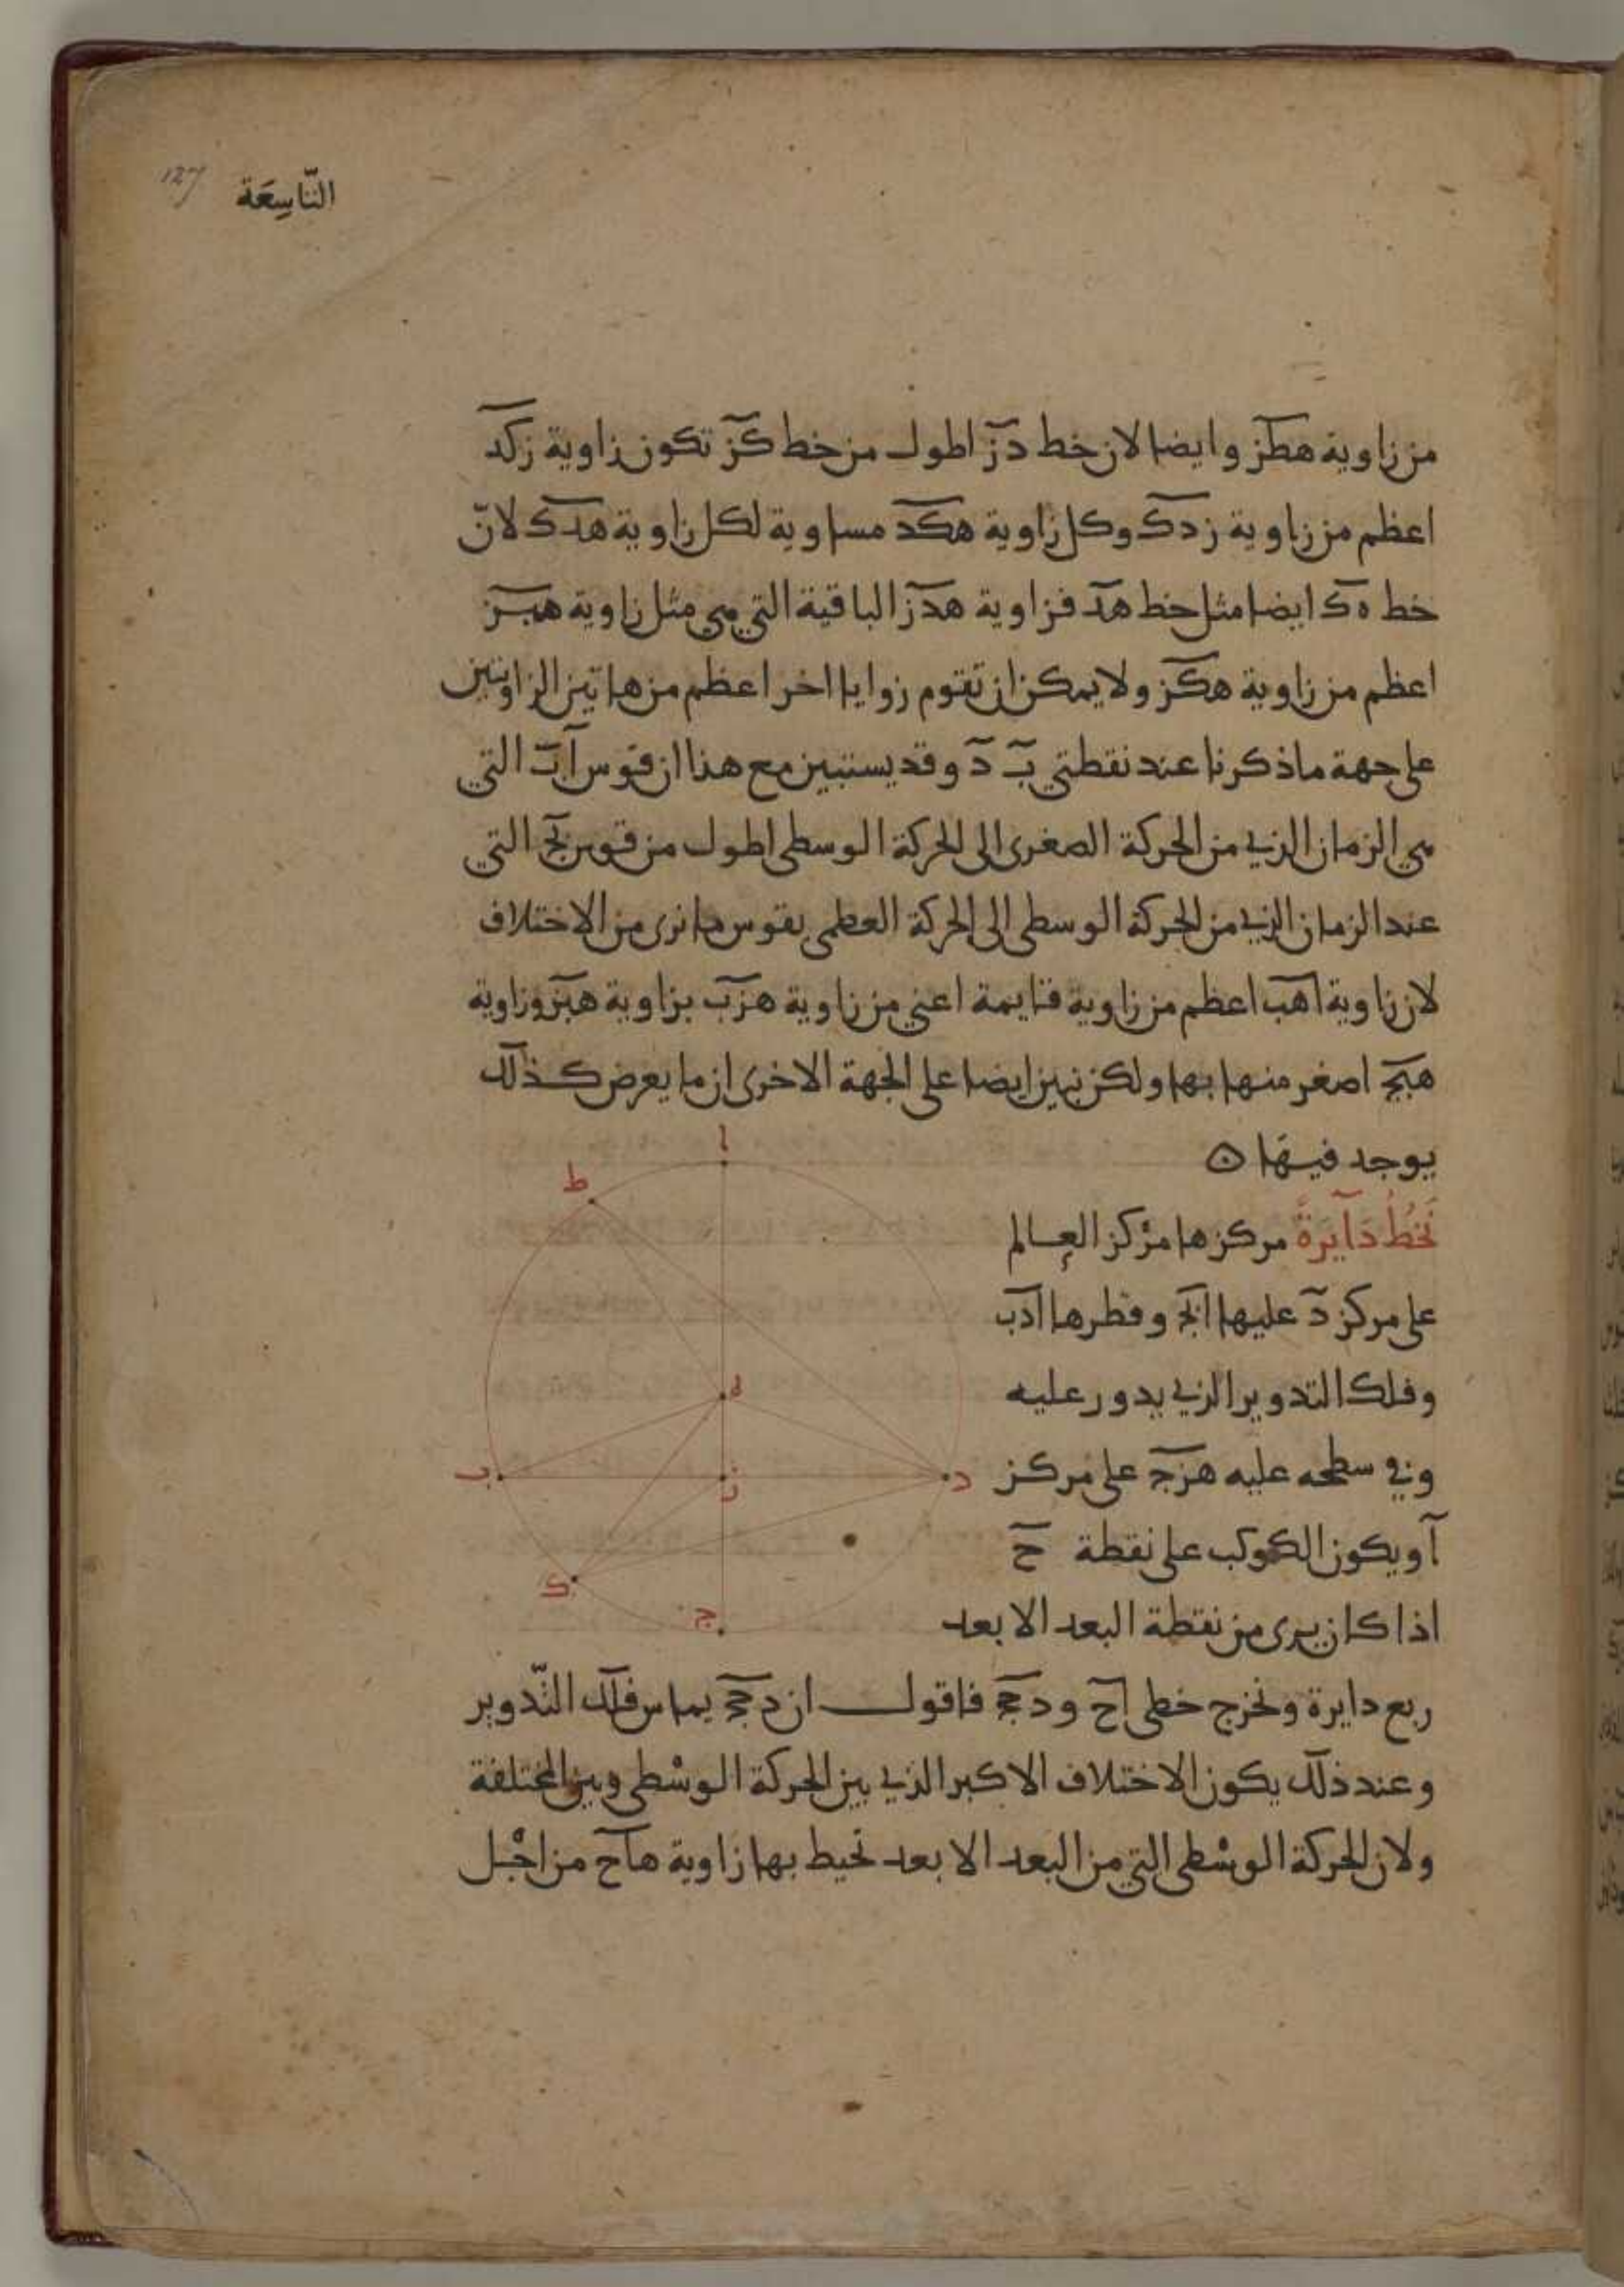 127
التّاسِعَة
من زاوية هطز وايضا لان خط دز اطول من خط كز تكون زاوية زكد
اعظم من زاوية زدك وكل زاوية هكد مساوية لكل زاوية هدك لانّ
خط ه‍ك ايضا مثل خط هد فزاوية هدز الباقية التي هي مثل زاوية هبز
اعظم من زاوية هكز ولا يمكن ان تقوم زوايا اخر اعظم من هاتين الزاويتين
على جهة ما ذكرنا عند نقطتي ب د وقد يستبين مع هذا ان قوس اب التي
هي الزمان الذي من الحركة الصغرى الى الحركة الوسطى اطول من قوس بج التي
عند الزمان الذي من الحركة الوسطى الى الحركة العظمى بقوس ما نرى من الاختلاف
لان زاوية اهب اعظم من زاوية قايمة اعني من زاوية هزب بزاوية هبز وزاوية
هبج اصغر منها بها ولكن نبين ايضا على الجهة الاخرى ان ما يعرض كذلك
يوجد فيها ن
نَخُطُّ دَآيَرةً مركزها مرْكز العالم
على مركز د عليها ابج وقطرها ادب
وفلك التدوير الذي يدور عليه
وفي سطحه عليه هزج على مركز
آ ويكون الكوكب على نقطة ح
اذا كان يرى من نقطة البعد الابعد
ربع دايرة ونخرج خطى اح ودحج فاقول ان دحج يماس فلك التّدوير
وعند ذلك يكون الاختلاف الاكبر الذي بين الحركة الوسْطى وبين المختلفة
ولان الحركة الوسْطى التي من البعد الابعد تحيط بها زاوية هاح من اجْل
ا
ط
ه
ب
ز
د
ك
ج